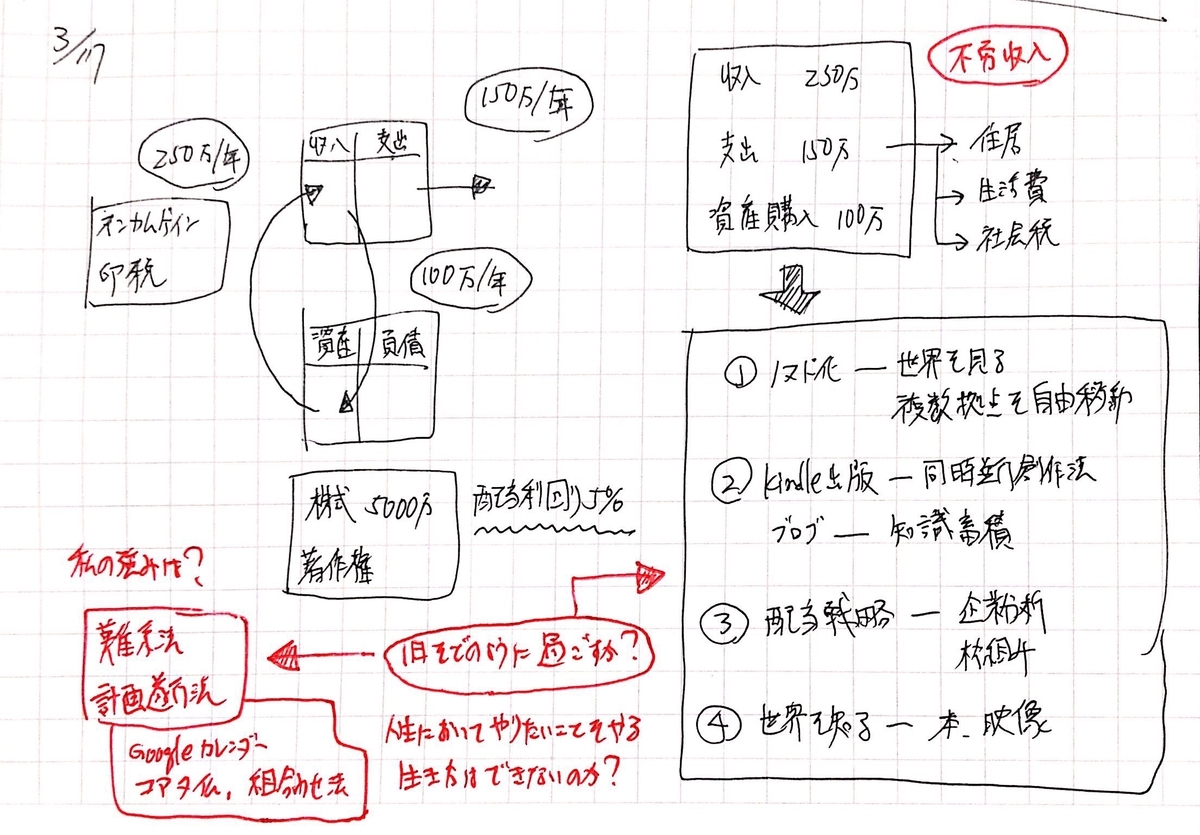 3/17
150万/年
250万/年
収入 支出
インカムゲイン
印税
100万/年
資産 負債
株式 5000万
著作権
配当利回り5%
不労収入
収入 250万
支出 150万
資産購入 100万
住居
生活費
社会税
① ノマド化 — 世界を見る
複数拠点を自由移動
② Kindle出版 — 同時並行創作法
ブログ — 知識蓄積
③ 配当戦略 — 企業分析
枠組み
④ 世界を知る — 本、映像
私の強みは?
計画遂行法
Googleカレンダー
コアタイム、組合わせ法
1日をどのように過ごすか?
人生においてやりたいことをやる
生き方はできないのか?